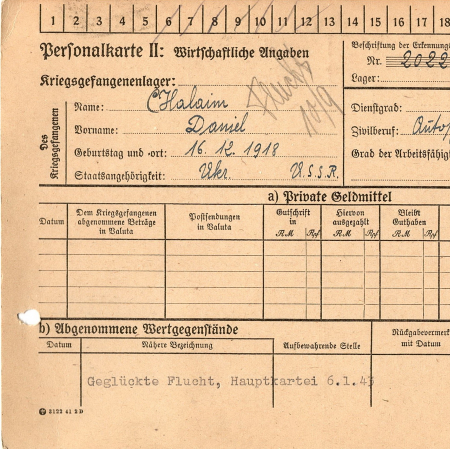 1 2 3 4 5 6 7 8 9 10 11 12 13 14 15 16 17 18
Personalkarte II: Wirtschaftliche Angaben
Beschriftung der Erkennungs
Nr. 2022
Kriegsgefangenenlager:
Lager:
Flucht
10/9
Des Kriegsgefangenen
Name: Chalaim
Vorname: Daniel
Geburtstag und -ort: 16. 12. 1918
Staatsangehörigkeit: Ukr. U.S.S.R.
Dienstgrad:
Zivilberuf: Auto
Grad der Arbeitsfähig
a) Private Geldmittel
Datum
Dem Kriegsgefangenen abgenommene Beträge in Valuta
Postsendungen in Valuta
Gutschrift in
RM Rpf
Hiervon ausgezahlt
RM Rpf
Bleibt Guthaben
RM Rpf
b) Abgenommene Wertgegenstände
Datum
Nähere Bezeichnung
Aufbewahrende Stelle
Rückgabevermerk mit Datum
Geglückte Flucht, Hauptkartei 6.1.43
3122 41 2 D